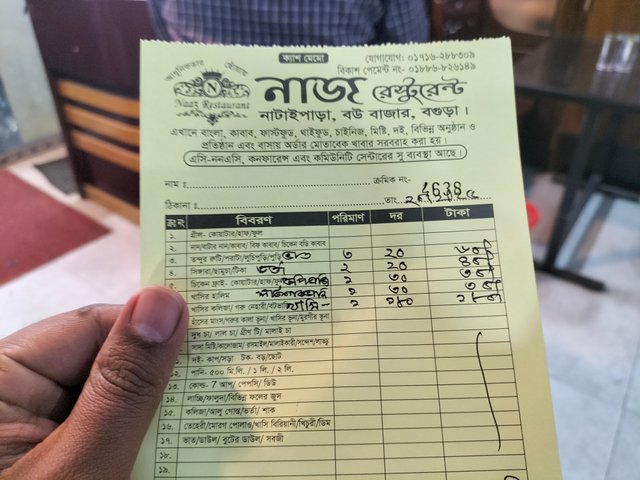 ক্যাশ মেমো
যোগাযোগ: ০১৭১৬-২৮৮৩০৯
বিকাশ পেমেন্ট নং- ০১৮৮৬-৮২৬১৪৯
আধুনিকতার ছোঁয়ায়
N
Naaz Restaurant
নাজ রেস্টুরেন্ট
নাটাইপাড়া, বউ বাজার, বগুড়া।
এখানে বাংলা, কাবাব, ফাস্টফুড, থাইফুড, চাইনিজ, মিষ্টি, দই, বিভিন্ন অনুষ্ঠান ও
প্রতিষ্ঠান এবং বাসায় অর্ডার মোতাবেক খাবার সরবরাহ করা হয়।
এসি-ননএসি, কনফারেন্স এবং কমিউনিটি সেন্টারের সু ব্যবস্থা আছে।
নাম ঃ ক্রমিক নং- 4638
ঠিকানা ঃ তাং
ক্র:নং বিবরণ পরিমাণ দর টাকা
১. গ্রীল- কোয়াটার/হাফ/ফুল
২. নান/বাটার নান/কাবাব/ বিফ কাবাব/ চিকেন বটি কাবাব
৩. তন্দুর রুটি/পরাটা/লুচিপুড়ি/পুড়ি ৩ ২০ ৬০
৪. সিঙ্গারা/ছামুচা/টিকা ভর্তা ২ ২০ ৪০
৫. চিকেন ফ্রাই- কোয়াটার/হাফ/ফুল ৩০
খাসির হালিম ৩০
খাসির কলিজা/ গরু নেহারী/বট খাসি ২
হাঁসের মাংস/গরুর কালা ভুনা/ খাসির ভুনা/মুরগীর ভুনা
দুধ চা/ লাল চা/ গ্রীণ টি/ মালাই চা
সাদা মিষ্টি/কালোজাম/ রসমাইল/মালাইকারী/সন্দেশ/লাড্ডু
দই- কাপ/সরা টক- বড়/ছোট
১২. পানি- ৫০০ মি.লি. / ১ লি. / ২ লি.
১৩. কোল্ড- 7 আপ/ পেপসি/ ডিউ
১৪. লাচ্ছি/ফালুদা/বিভিন্ন ফলের জুস
১৫. কলিজা/আলু গোস্ত/ভর্তা/ শাক
১৬. তেহেরী/মোরগ পোলাও/খাসি বিরিয়ানী/খিচুরী/ডিম
১৭. ভাত/ডাউল/ বুটের ডাউল/ সবজী
১৮.
১৯.